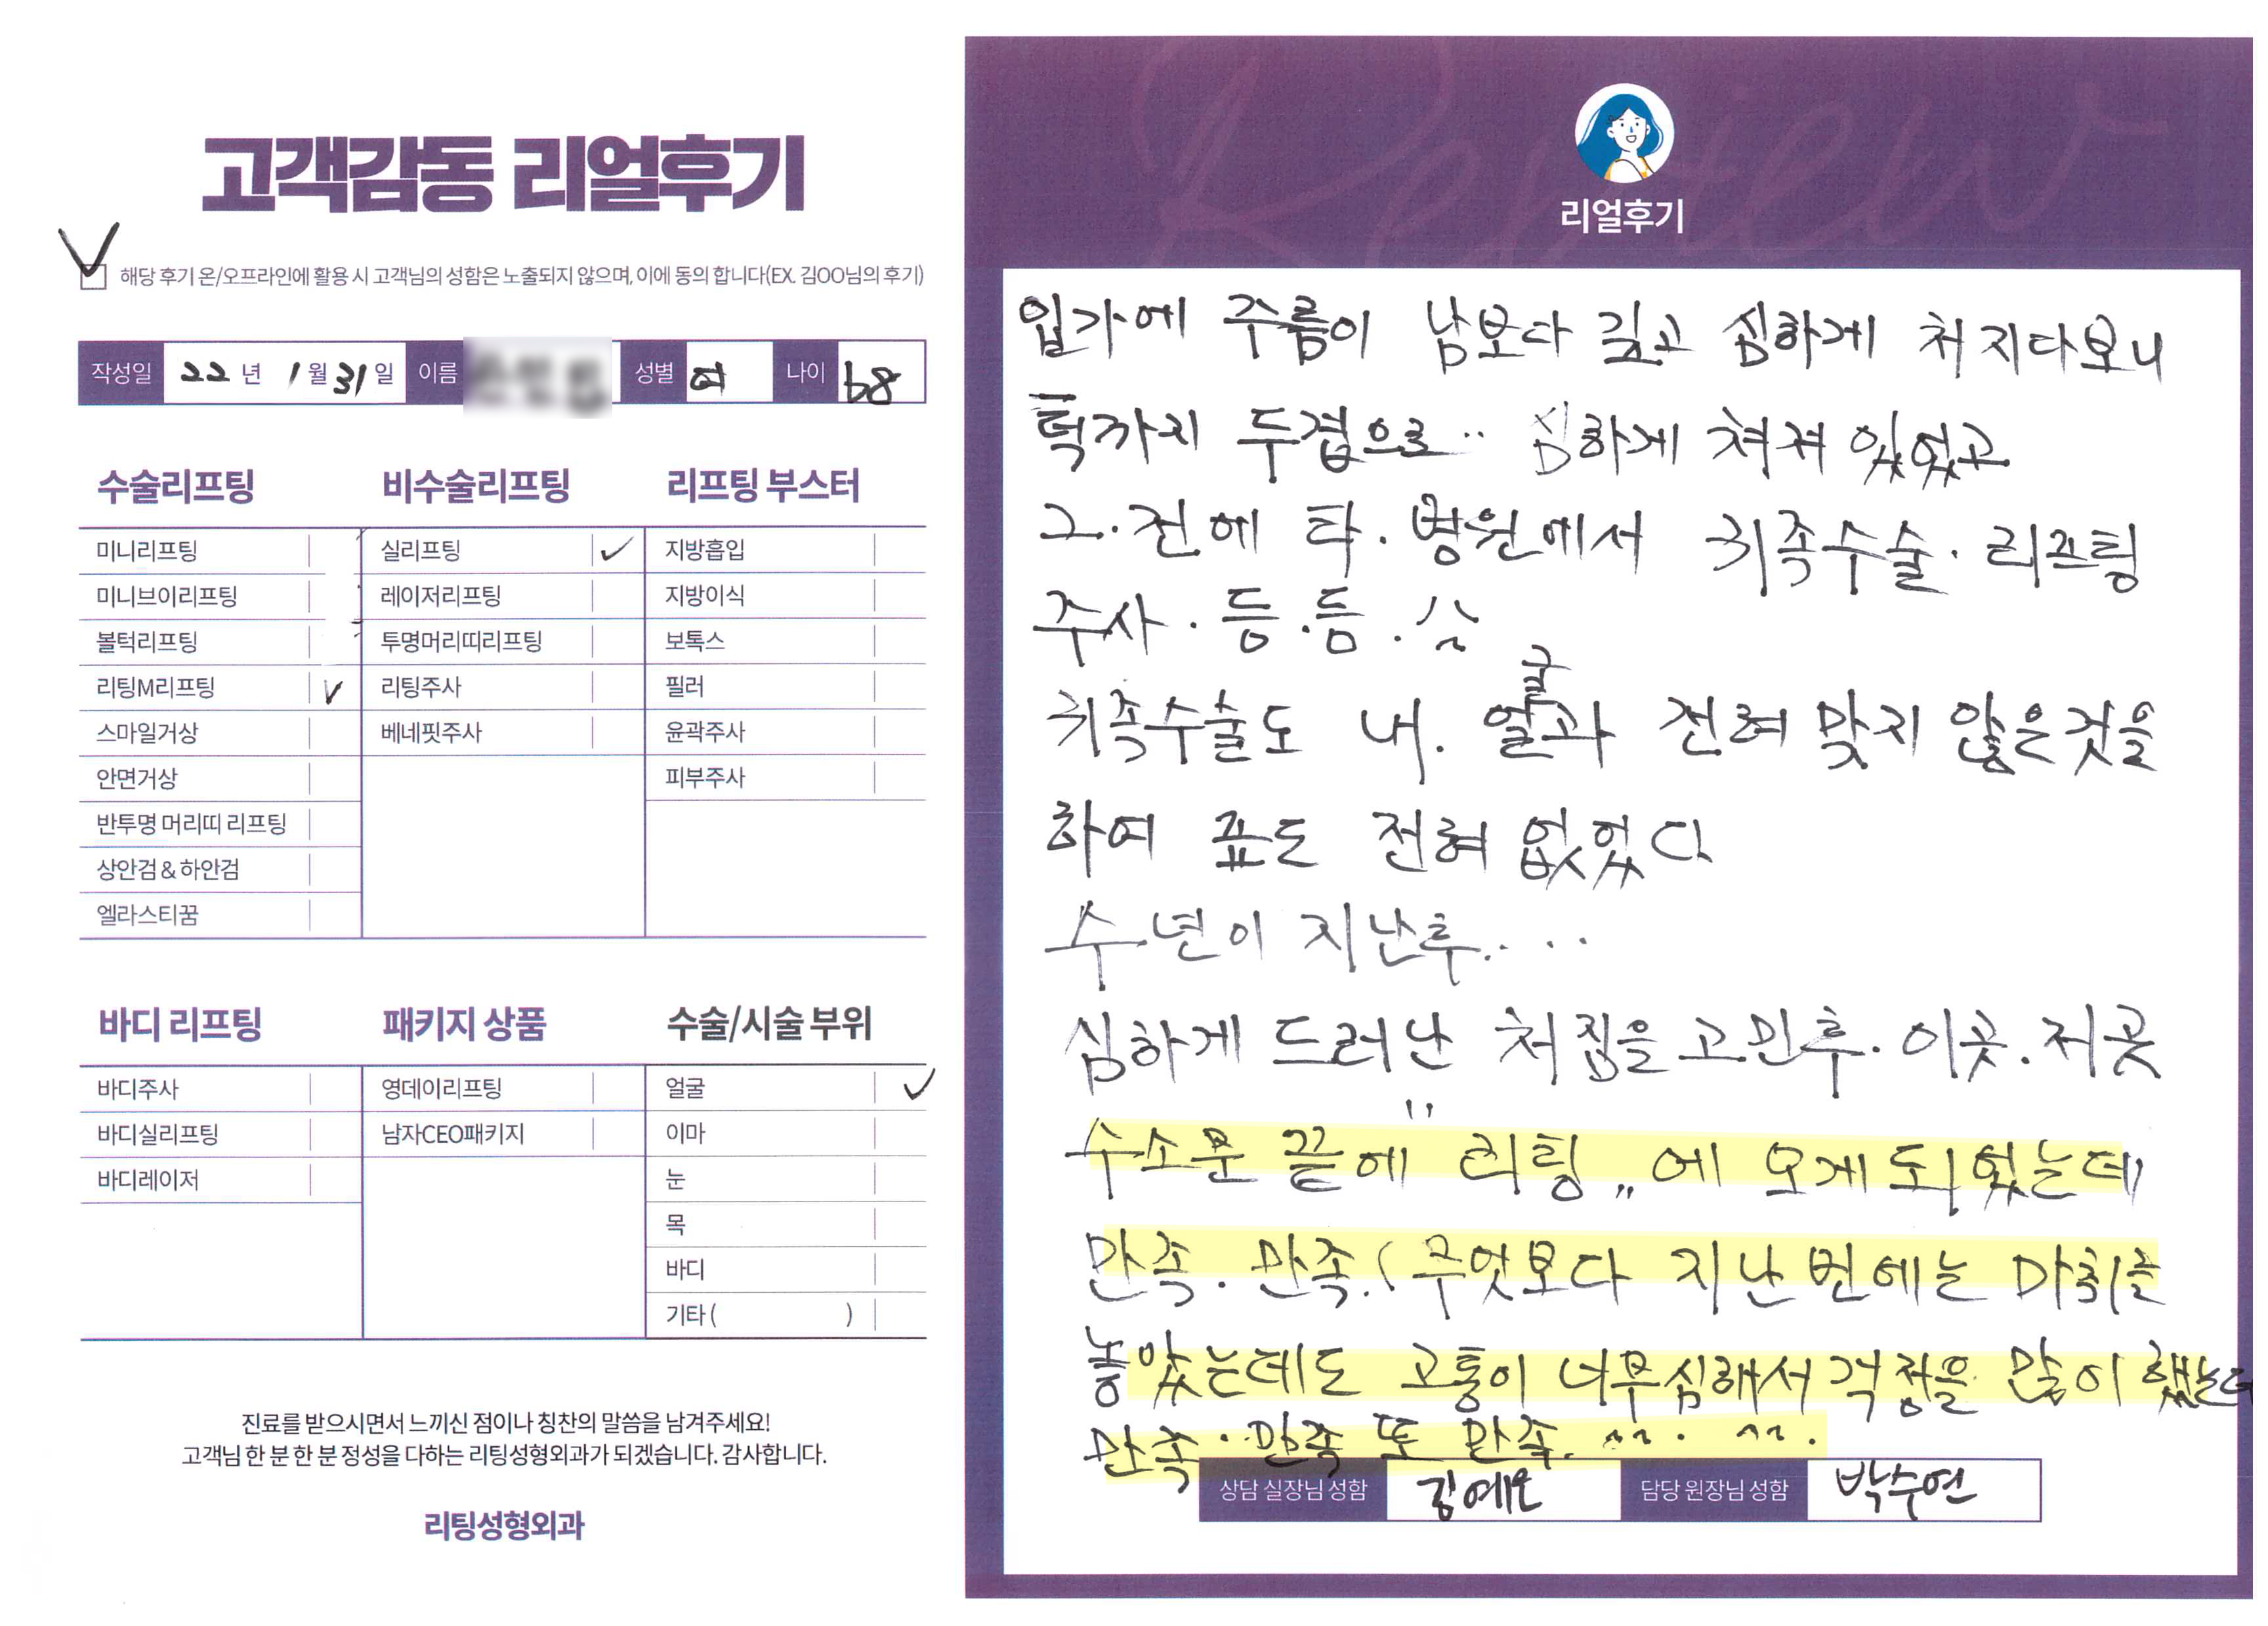 고객감동 리얼후기
해당 후기 온/오프라인에 활용 시 고객님의 성함은 노출되지 않으며, 이에 동의 합니다(EX. 김OO님의 후기)
작성일 22년 1월 31일 이름 성별 여 나이 68
수술리프팅
미니리프팅
미니브이리프팅
볼턱리프팅
리팅M리프팅
스마일거상
안면거상
반투명 머리띠 리프팅
상안검 & 하안검
엘라스티꿈
비수술리프팅
실리프팅
레이저리프팅
투명머리띠리프팅
리팅주사
베네핏주사
리프팅 부스터
지방흡입
지방이식
보톡스
필러
윤곽주사
피부주사
바디 리프팅
바디주사
바디실리프팅
바디레이저
패키지 상품
영데이리프팅
남자CEO패키지
수술/시술 부위
얼굴
이마
눈
목
바디
기타( )
진료를 받으시면서 느끼신 점이나 칭찬의 말씀을 남겨주세요!
고객님 한 분 한 분 정성을 다하는 리팅성형외과가 되겠습니다. 감사합니다.
리팅성형외과
Review
리얼후기
입가에 주름이 남보다 깊고 심하게 처지다보니
턱까지 두겹으로.. 심하게 쳐져 있었고
그.전에 타.병원에서 귀족수술. 리프팅
주사.등.등.
귀족수술도 내. 얼굴과 전혀 맞지 않은것을
하여 표도 전혀 없었다
수년이 지난후....
심하게 드러난 처짐을 고민후. 이곳.저곳
수소문 끝에 "리팅"에 오게되었는데
만족. 만족.! 무엇보다 지난번에는 마취를
놓았는데도 고통이 너무심해서 걱정을 많이 했는데
만족.만족 또 만족. ^^. ^^.
상담 실장님 성함 김예은 담당 원장님 성함 박수연